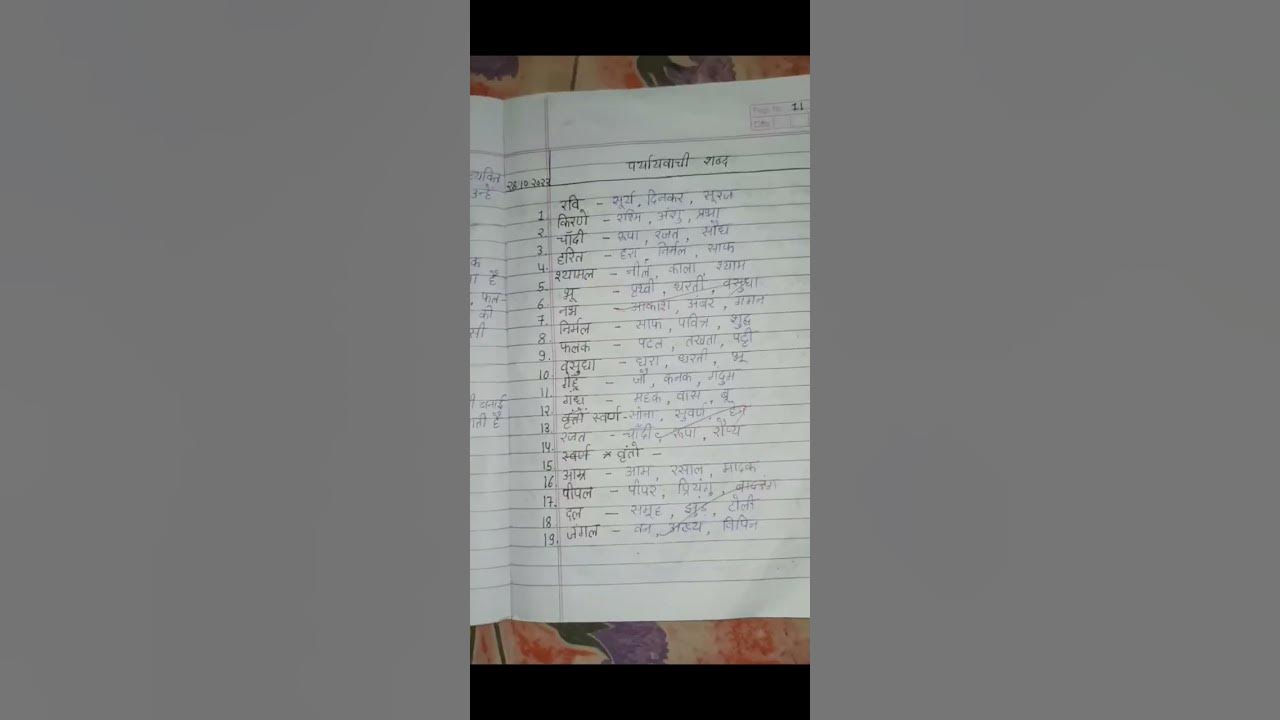 Page No. 11
Date
पर्यायवाची शब्द
28.10.2022
1. रवि - सूर्य, दिनकर, सूरज
2. किरणे - रश्मि, अंशु, प्रभा
3. चाँदी - रूपा, रजत, सौध
4. हरित - हरा, निर्मल, साफ
5. श्यामल - नीला, काला, श्याम
6. भू - पृथ्वी, धरती, वसुधा
7. नभ - आकाश, अंबर, गगन
8. निर्मल - साफ, पवित्र, शुद्ध
9. फलक - पटल, तखता, पट्टी
10. वसुधा - धरा, धरती, भू
11. गेहूँ - जौ, कनक, गंदुम
12. गंध - महक, वास, बू
13. वृंतों स्वर्ण - सोना, सुवर्ण,
14. रजत - चाँदी, रूपा, रौप्य
15. स्वर्ण * वृंतो -
16. आम्र - आम, रसाल, मादक
17. पीपल - पीपर, प्रियंगु,
18. दल - समूह, झुंड, टोली
19. जंगल - वन, विपिन
व्यक्ति
उन्हे
क
ा है
फल-
की
सी
बनाई
ाती है